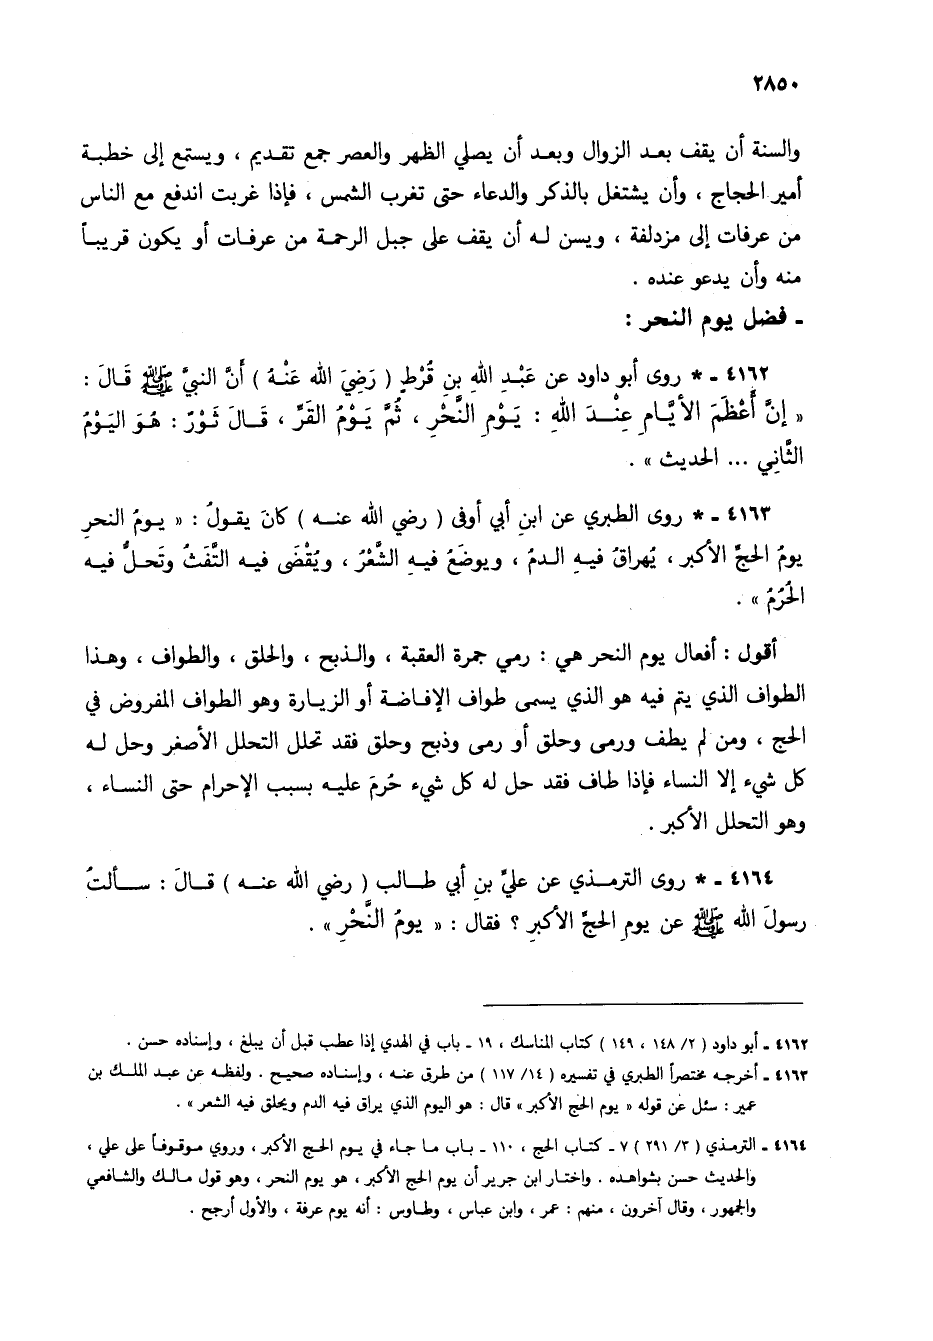 ٢٨٥٠
والسنة أن يقف بعد الزوال وبعد أن يصلي الظهر والعصر جمع تقديم ، ويستمع إلى خطبة
أمير الحجاج ، وأن يشتغل بالذكر والدعاء حتى تغرب الشمس ، فإذا غربت اندفع مع الناس
من عرفات إلى مزدلفة ، ويسن له أن يقف على جبل الرحمة من عرفات أو يكون قريباً
منه وأن يدعو عنده .
ـ فضل يوم النحر :
٤١٦٢ ـ * روى أبو داود عن عَبْدِ اللهِ بنِ قُرْطٍ ( رَضِيَ اللهُ عَنْهُ ) أَنَّ النبيَّ ﷺ قَالَ :
« إِنَّ أَعْظَمَ الأَيَّامِ عِنْدَ اللهِ : يَوْمِ النَّحْرِ ، ثُمَّ يَوْمُ القَرِّ ، قَالَ ثَوْرٌ : هُوَ اليَوْمُ
الثَّانِي ... الحديث » .
٤١٦٣ ـ * روى الطبري عن ابنِ أبي أوفى ( رضي الله عنه ) كانَ يقولُ : « يومُ النحرِ
يومُ الحجِّ الأكبر ، يُهراقُ فيهِ الدمُ ، ويوضَعُ فيهِ الشَّعْرُ ، ويُقْضَى فيه التَّفَثُ وتَحلُّ فيه
الحُرُمُ » .
أقول : أفعال يوم النحر هي : رمي جمرة العقبة ، والذبح ، والحلق ، والطواف ، وهذا
الطواف الذي يتم فيه هو الذي يسمى طواف الإفاضة أو الزيارة وهو الطواف المفروض في
الحج ، ومن لم يطف ورمى وحلق أو رمى وذبح وحلق فقد تحلل التحلل الأصغر وحل له
كل شيء إلا النساء فإذا طاف فقد حل له كل شيء حُرمَ عليه بسبب الإحرام حتى النساء ،
وهو التحلل الأكبر .
٤١٦٤ ـ * روى الترمذي عن عليِّ بنِ أبي طالب ( رضي الله عنه ) قالَ : سألتُ
رسولَ الله ﷺ عن يومِ الحجِّ الأكبرِ ؟ فقال : « يومُ النَّحْرِ » .
٤١٦٢ ـ أبو داود ( ٢/ ١٤٨ ، ١٤٩ ) كتاب المناسك ، ١٩ ـ باب في الهدي إذا عطب قبل أن يبلغ ، وإسناده حسن .
٤١٦٣ ـ أخرجه مختصراً الطبري في تفسيره ( ١٤/ ١١٧ ) من طرق عنه ، وإسناده صحيح . ولفظه عن عبد الملك بن
عمير : سئل عن قوله « يوم الحج الأكبر » قال : هو اليوم الذي يراق فيه الدم ويحلق فيه الشعر » .
٤١٦٤ ـ الترمذي ( ٣/ ٢٩١ ) ٧ ـ كتاب الحج ، ١١٠ ـ باب ما جاء في يوم الحج الأكبر ، وروي موقوفاً على علي ،
والحديث حسن بشواهده . واختار ابن جرير أن يوم الحج الأكبر ، هو يوم النحر ، وهو قول مالك والشافعي
والجمهور ، وقال آخرون ، منهم : عمر ، وابن عباس ، وطاوس : أنه يوم عرفة ، والأول أرجح .